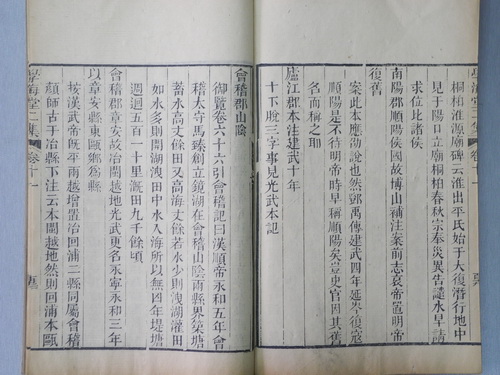 學海堂二集
卷十一
桐柏淮源廟碑云淮出平氏始于大復潛行地中
見于陽口立廟桐柏春秋宗奉災異告譴水旱請
求位比諸侯
南陽郡順陽侯國故博山補注案前志哀帝置明帝
復舊
案此本應劭說也然鄧禹傳建武四年延岑復寇
順陽是不待明帝時早稱順陽矣豈史官因其舊
名而稱之耶
廬江郡本注建武十年
十下脫三字事見光武本記
會稽郡山陰
御覽卷六十六引會稽記曰漢順帝永和五年會
稽太守馬臻創立鏡湖在會稽山陰兩縣界築塘
蓄水高丈餘田又高海丈餘若水少則洩湖灌田
如水多則開湖洩田中水入海所以無凶年堤塘
週迴五百一十里溉田九千餘頃
會稽郡章安故冶閩越地光武更名永寧永和三年
以章安縣東甌鄉為縣
按漢武帝既平兩越增置冶回浦二縣同屬會稽
顏師古于冶縣下注云本閩越地然則回浦本甌
學海堂二集
卷十一